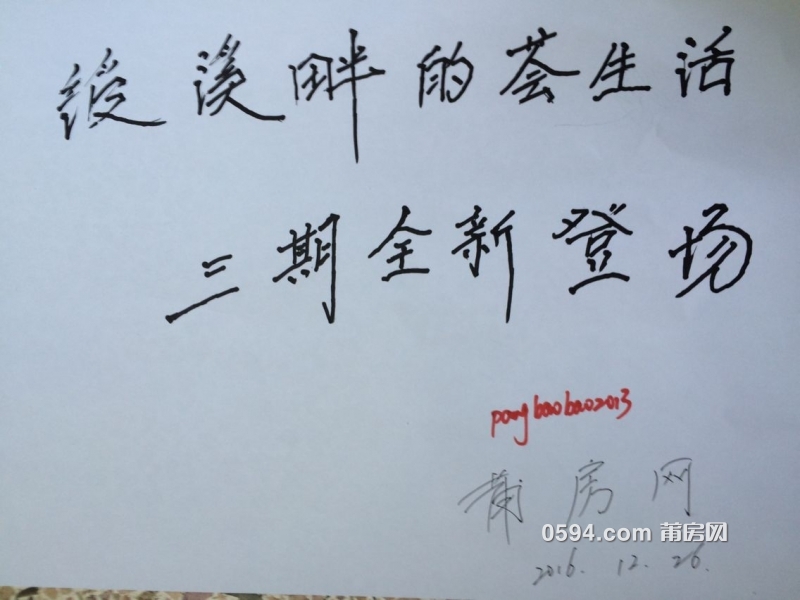 绶溪畔的荟生活
三期全新登场
pangbaobao2013
莆房网
0594.com 莆房网
2016.12.26.